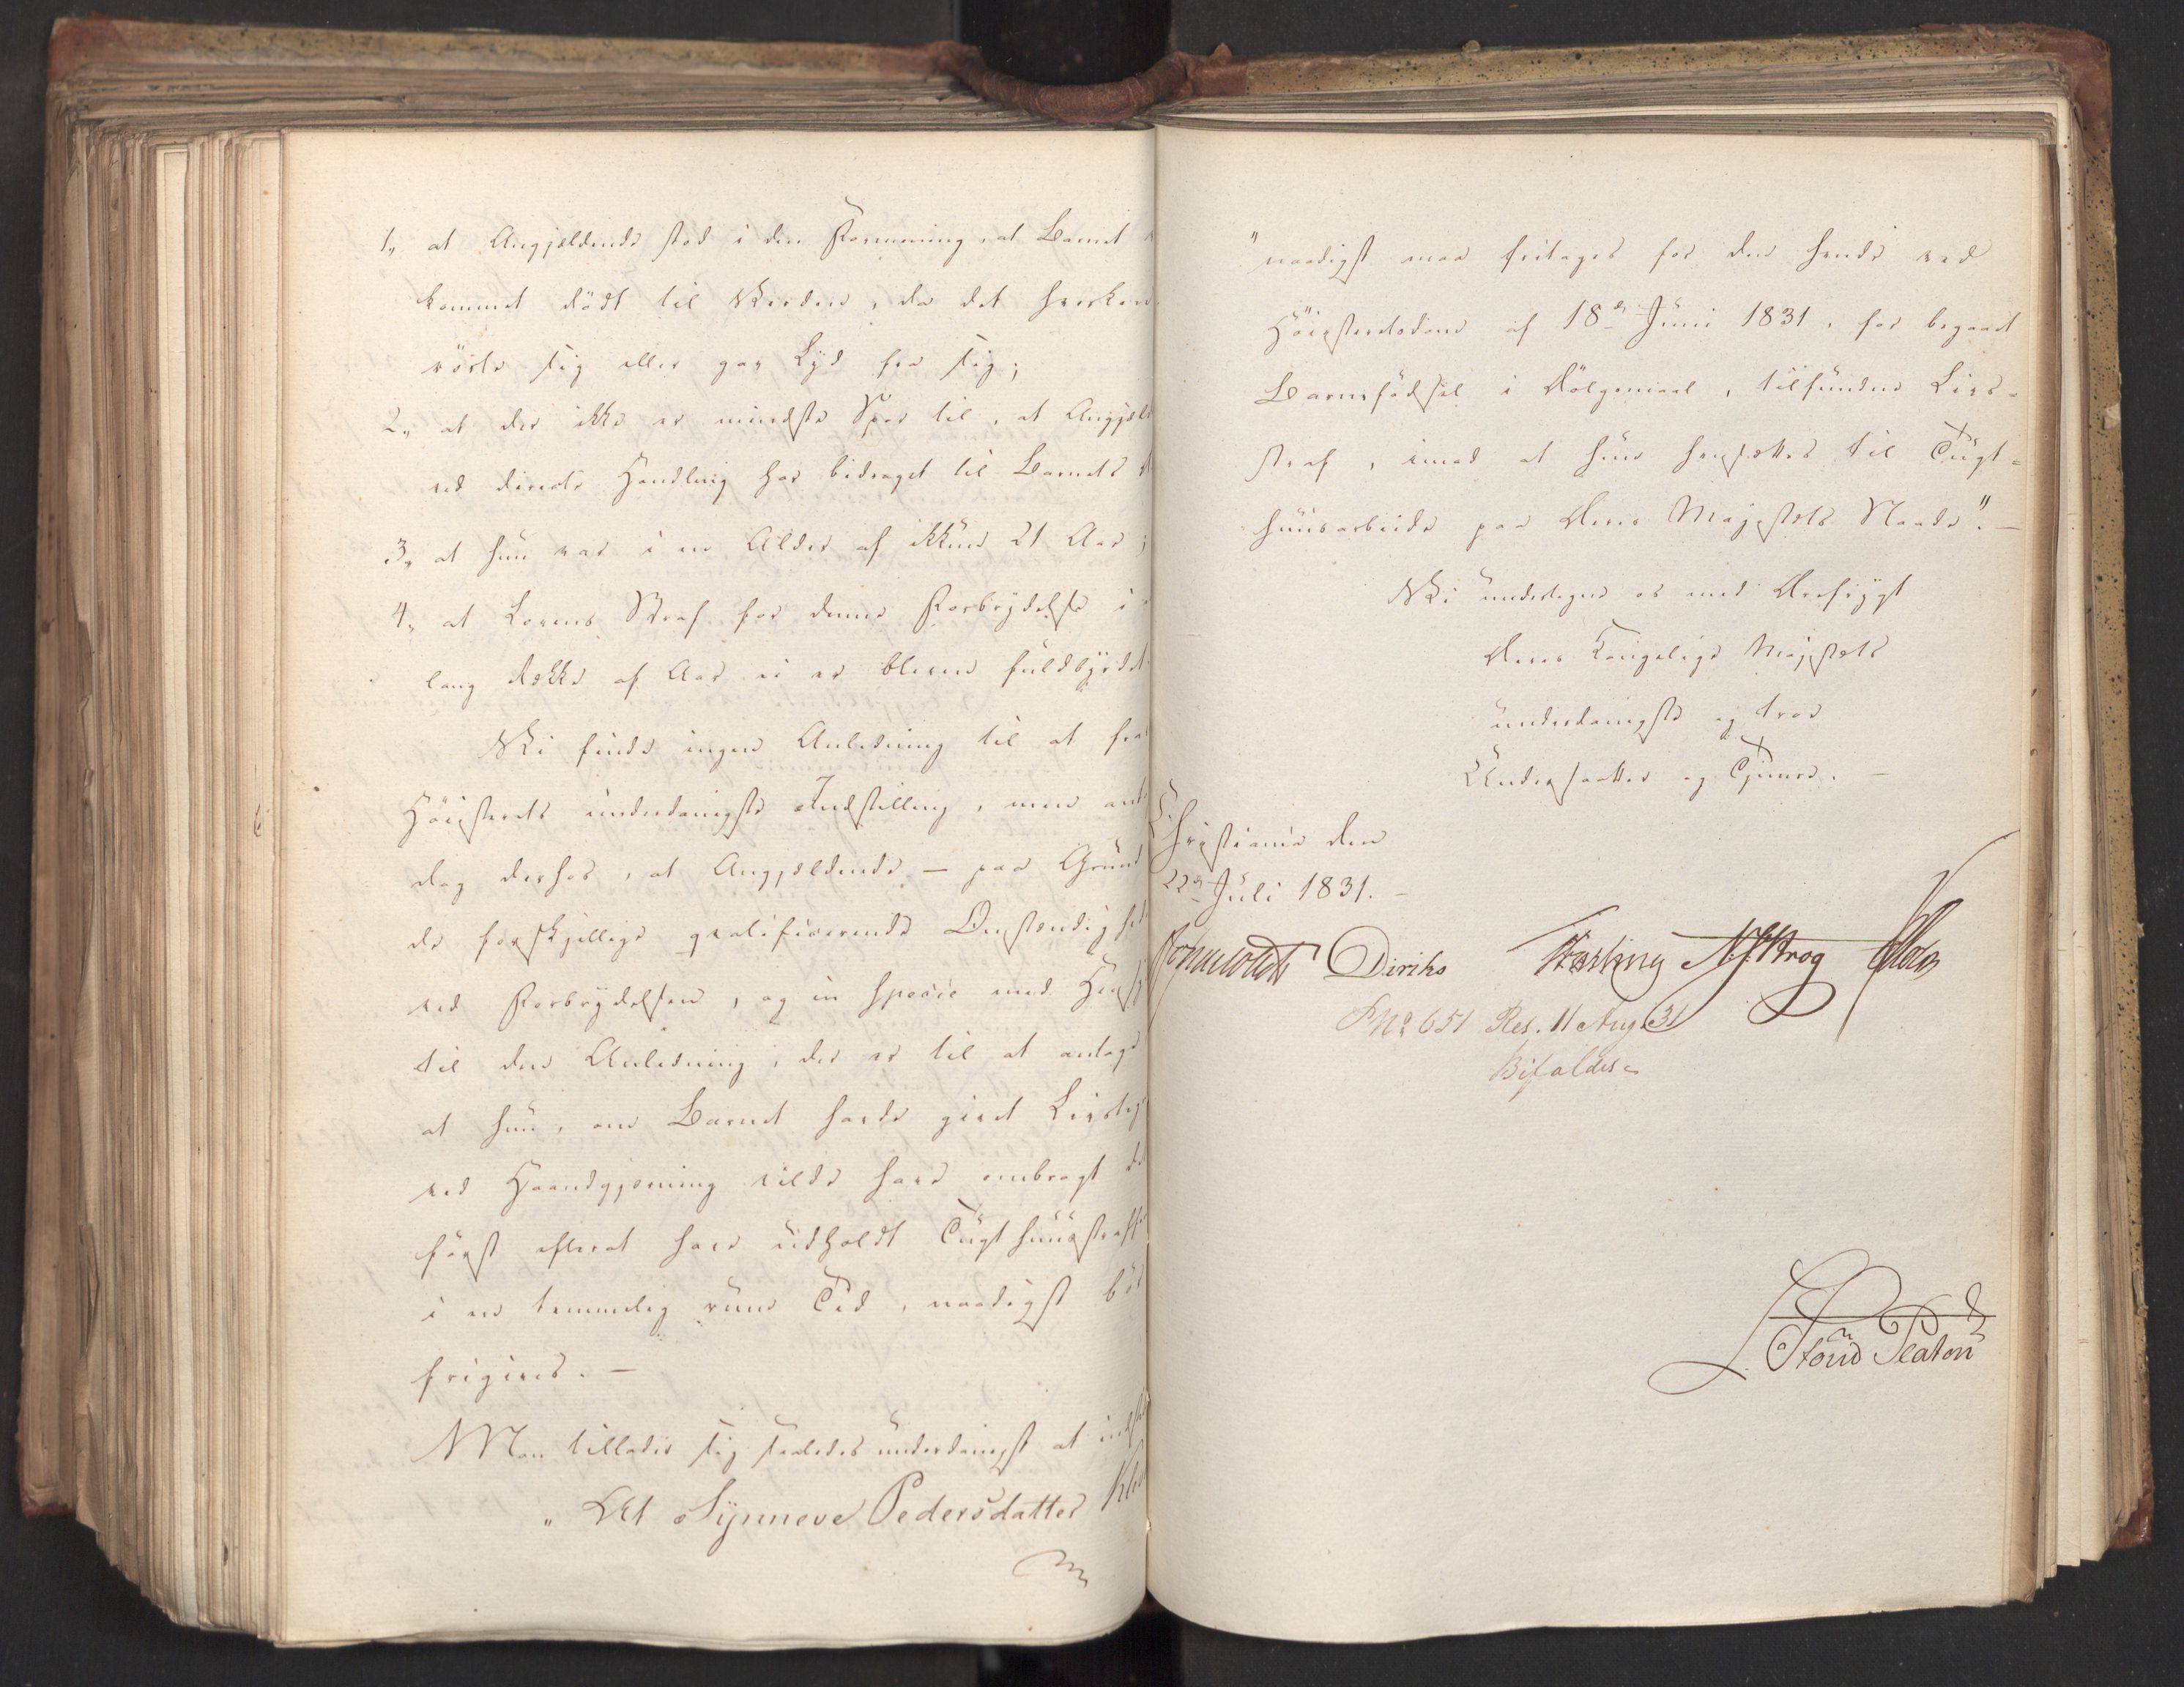 1, at Angjeldende stod i den Formening, at Barnet
kommet dödt til Verden, da det hverken
rörte sig eller gav Lyd fra sig;
2, at der ikke er mindste Spor til, at Angjeld
ved directe Handling har bidraget til Barnets
3, at hun var i en Alder af ikkun 21 Aar;
4, at Lovens Straf for denne Forbrydelse i
lang Række af Aar ei er bleven fuldbyrdet
Vi finde ingen Anledning til at fra
Höiesterets underdanigste Indstilling, men
dog derhos, at Angjeldende — paa Grund
de forskjellige qvalificerende Omstændighed
ved Forbrydelsen, og in specie med Hens
til den Anledning, der er til at antage
at hun, om Barnet havde givet Livsteg
ved Haandgjerning vilde have ombragt
först efterat have udholdt Tugthuusstraff
i en temmelig rum Tid, naadigst bör
frigives. —
Man tillader sig saaledes underdanigst at indst
"At Synneve Pedersdatter
"naadigst maa fritages for den hende ved
Höiesteretsdom af 18de Juni 1831, for begaaet
Barnefödsel i Dölgsmaal, tilfundne Livs-
straf, imod at hun hensættes til Tugt-
huusarbeide paa Deres Majestets Naade". —
Vi undertegne os med Ærefrygt
Deres Kongelige Majestets
underdanigste og troe
Undersaatter og Tjenere. —
Christiania den
22de Juli 1831. —
Diriks N. J. Krog
No 651 Res. 11 Aug. 31
Bifaldes
Stoud Platou